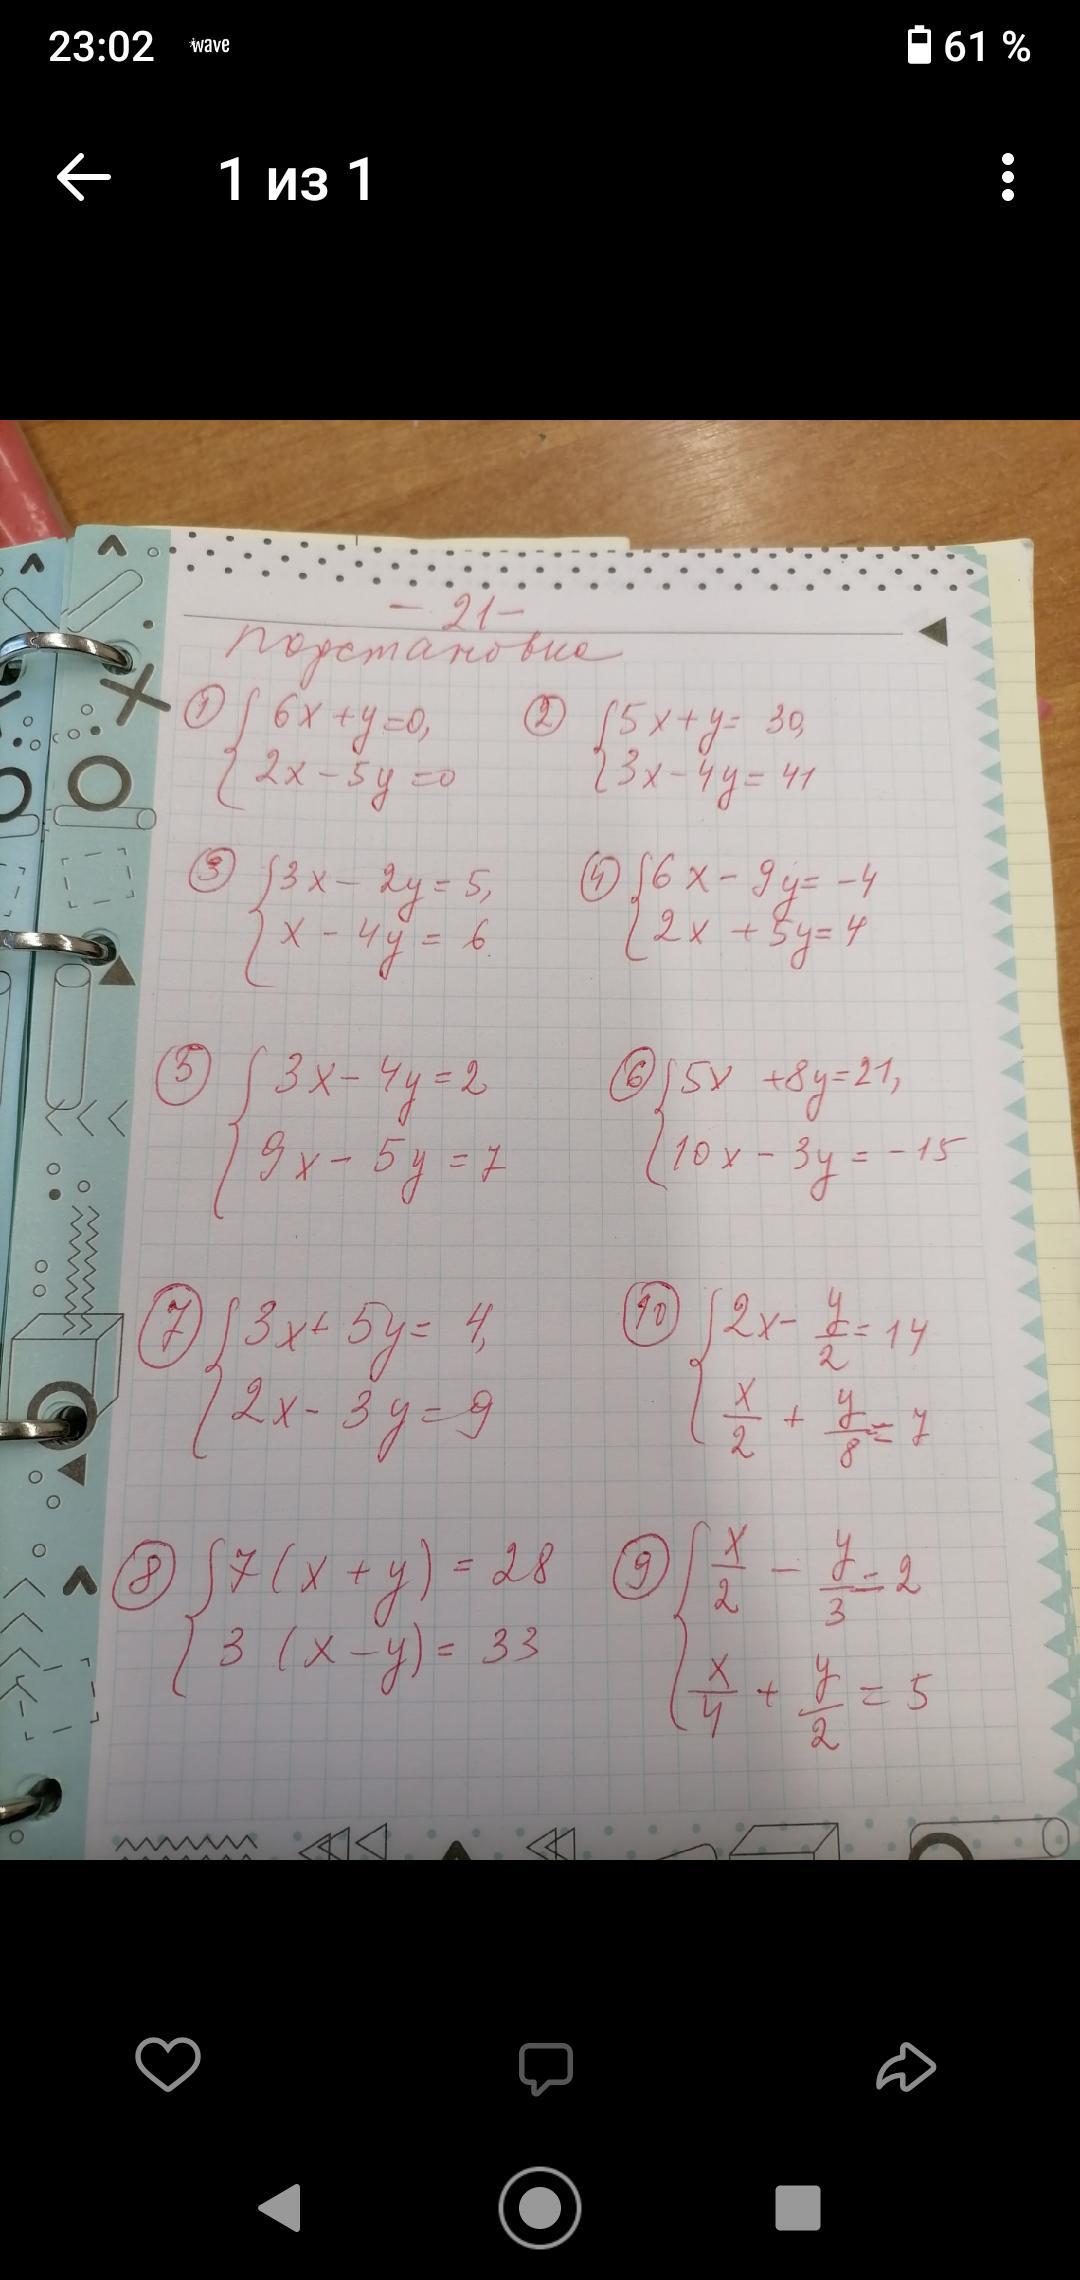 23:02 wave 61 %
1 из 1
- 21 -
Подстановка
① { 6x + y = 0,
2x - 5y = 0
② { 5x + y = 30,
3x - 4y = 41
③ { 3x - 2y = 5,
x - 4y = 6
④ { 6x - 9y = -4
2x + 5y = 4
⑤ { 3x - 4y = 2
9x - 5y = 7
⑥ { 5x + 8y = 21,
10x - 3y = -15
⑦ { 3x + 5y = 4,
2x - 3y = 9
⑩ { 2x - y/2 = 14
x/2 + y/8 = 7
⑧ { 7(x + y) = 28
3(x - y) = 33
⑨ { x/2 - y/3 = 2
x/4 + y/2 = 5